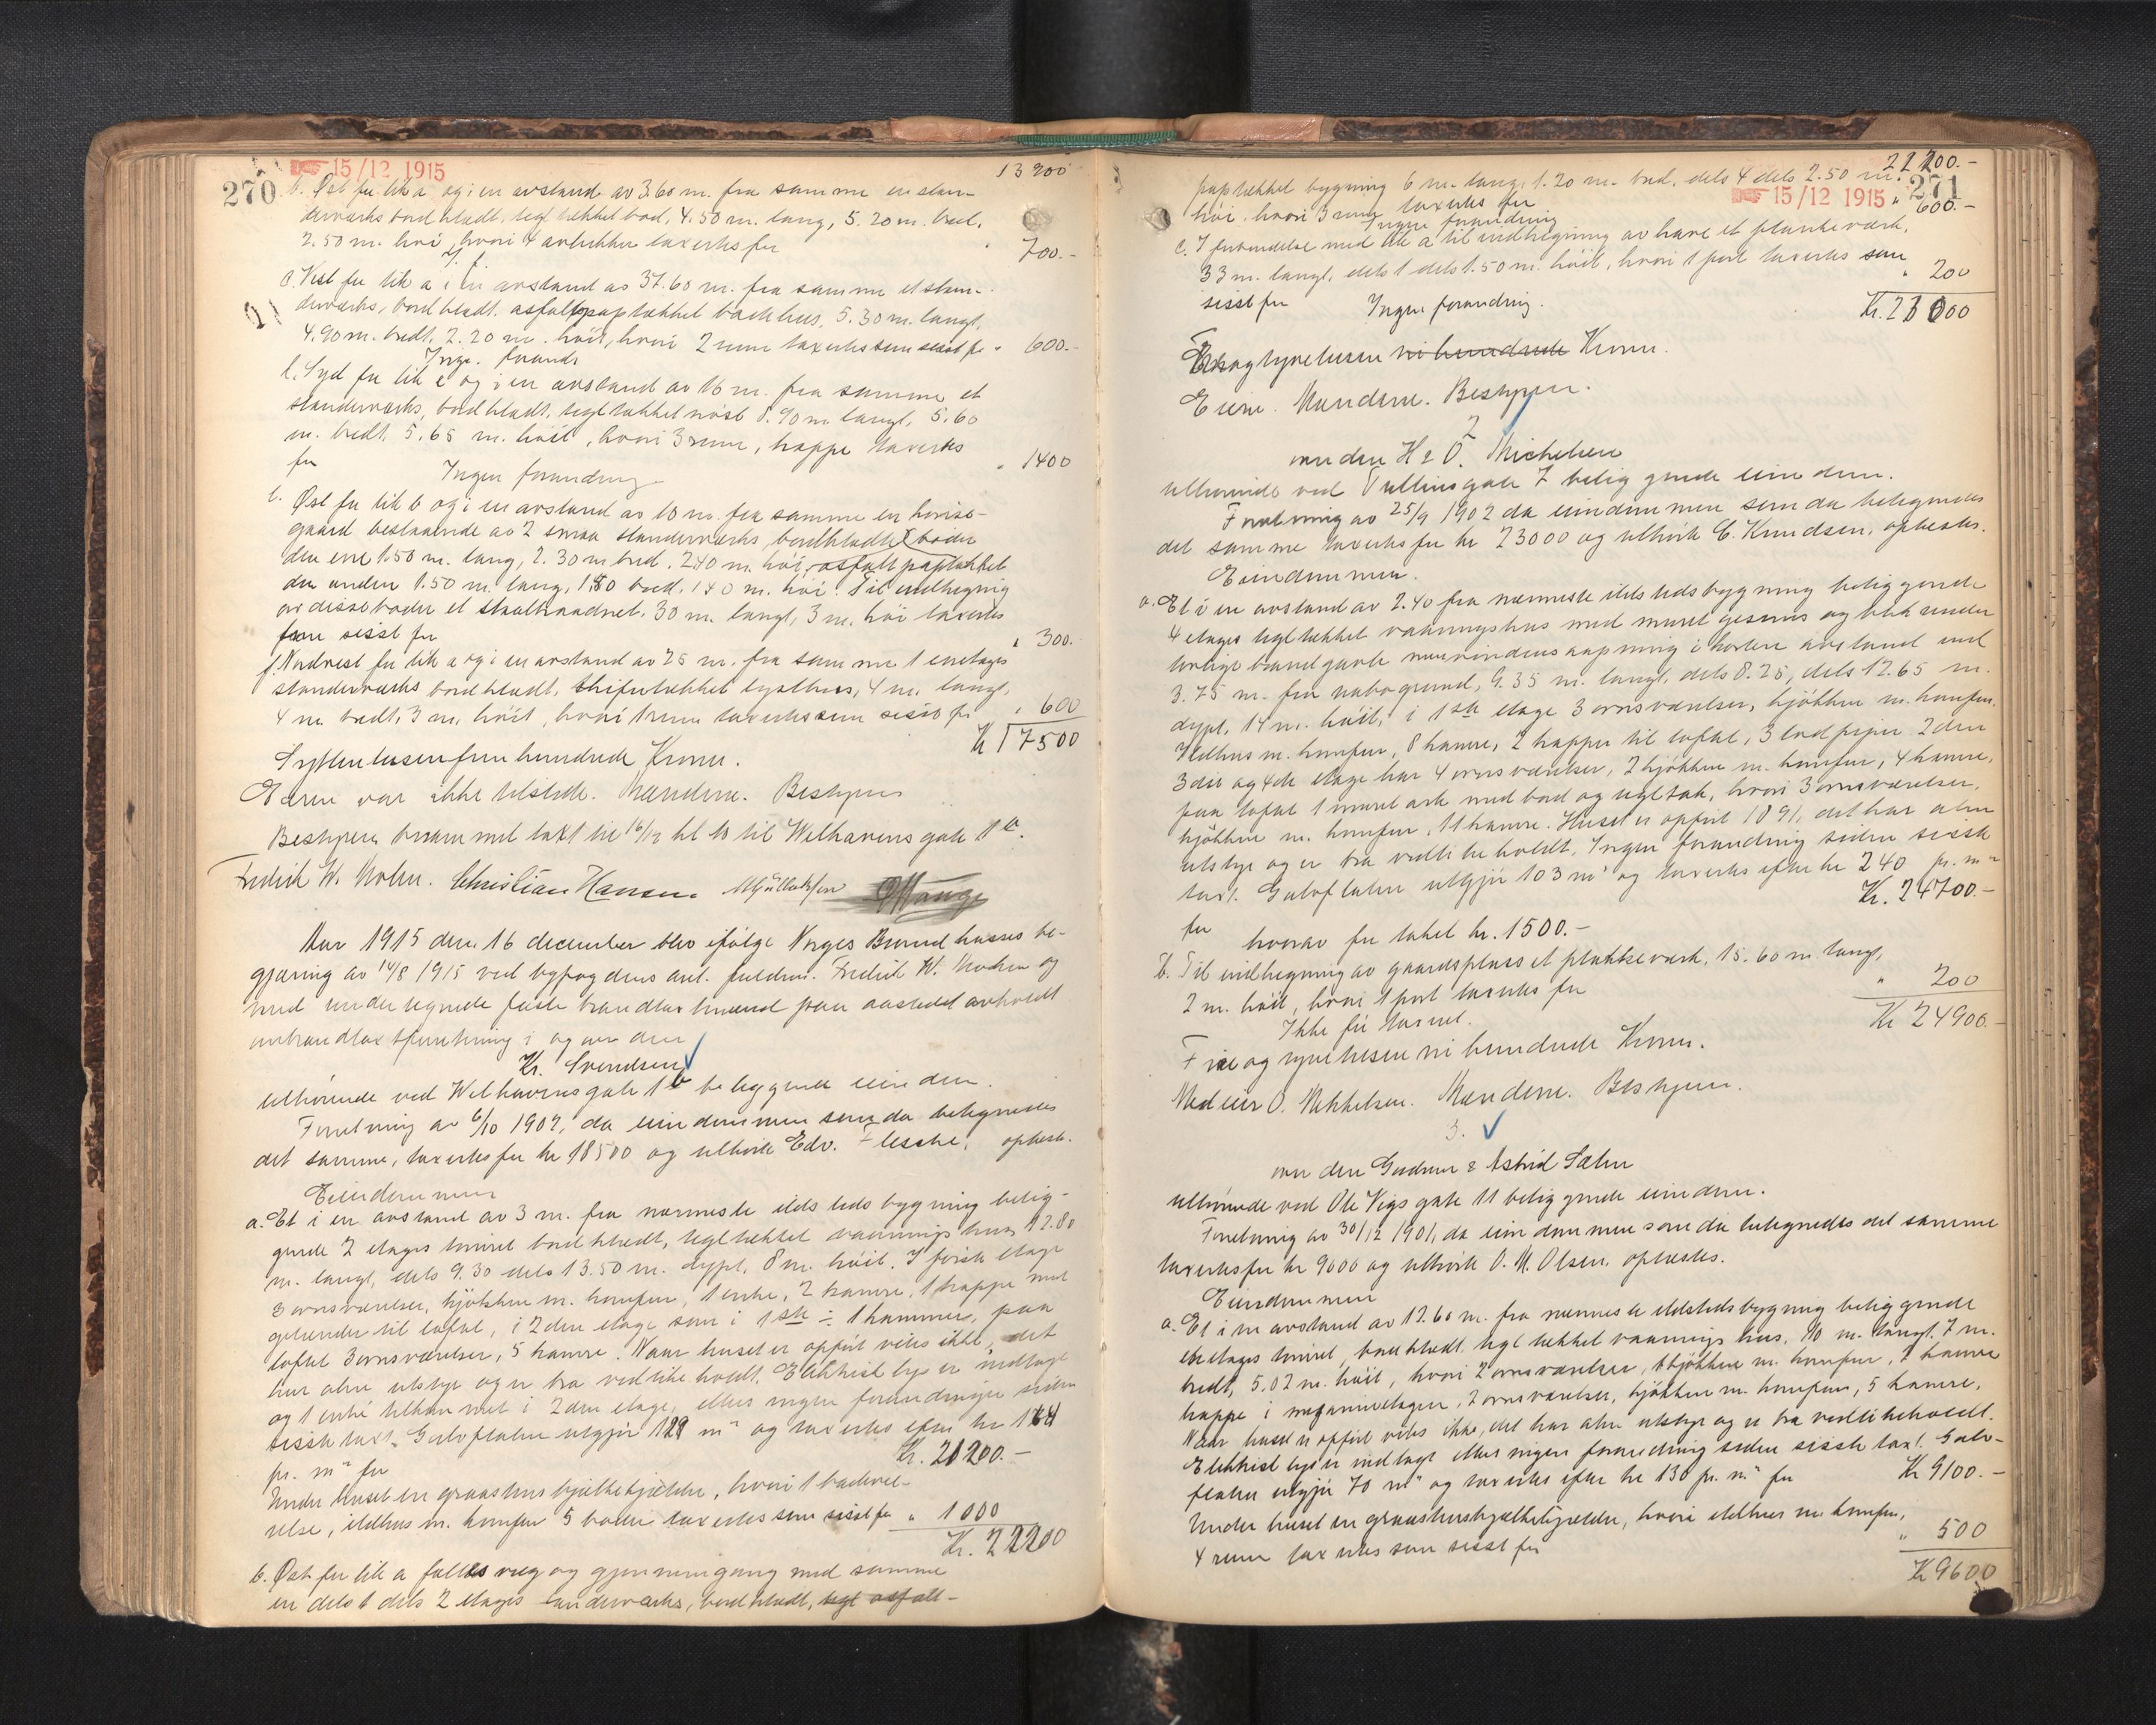 15/12 1915
270
13 900
b. Øst for lit. a og i en avstand av 3.60 m. fra samme en sten-
derværks bordklædt, tegltækket bod, 4.50 m. lang, 5.20 m. bred,
2.50 m. høi, hvori 4 avlukker taxertes for " 700.-
c. Vest for lit a i en avstand av 37.60 m. fra samme et sten-
derværks, bordklædt, asfaltpaptækket bakhus, 5.30 m. langt,
4.90 m. bredt, 2.20 m. høit, hvori 2 rum taxertes som sisst for " 600.-
Inge. forandr
d. Syd for lit c og i en avstand av 16 m. fra samme et
stenderværks, bordklædt, tegltækket nøst 8.90 m langt, 5.60
m. bredt, 5.65 m. høit, hvori 3 rum, trappe taxertes
for " 1400
Ingen forandring
e. Øst for lit b og i en avstand av 10 m. fra samme en hønse-
gaard bestaaende av 2 smaa stenderværks, bordklædte boder
den ene 1.50 m. lang, 2.30 m bred, 2.40 m. høi, asfaltpaptækket
den anden 1.50 m. lang, 1.80 bred, 1.70 m. høi. Til indhegning
av disse boder et staaltraadnet, 30 m. langt, 3 m. høi taxertes
som sisst for " 300.
f. Nordvest for lit a og i en avstand av 25 m. fra samme 1 enetages
stenderværks bordklædt, skifertækket lysthus, 4 m. langt,
4 m. bredt, 3 m. høit, hvori 1 rum taxertes som sisst for " 600
Kr 17500
Syttentusenfemhundrede Kroner.
Eieren var ikke tilstede. Mændene. Bestyrer
Bestyrer berammet takst til 16/12 kl 10 til Welhavens gate 1 b.
Fredrik W. Christian Hansen
Aar 1915 den 16 december blev ifølge Norges Brandkasses be-
gjæring av 14/8 1915 ved byfogdens aut. fuldm. Fredrik W. og
med undertegnede faste brandtaxtmænd paa aastedet avholdt
ombrandtaxtforretning i og over den
Kr. Svendsen
tilhørende ved Welhavensgate 1 b beliggende eiendom.
Forretning av 6/10 1902, da eiendommen som da betegnedes
det samme, taxertes for kr 18500 og tilhørte Edv. Flesche, oplæst.
Eiendommen
a. Et i en avstand av 3 m. fra nærmeste ildstedsbygning belig-
gende 2 etages tømret bordklædt, tegltækket vaaningshus 12.80
m. langt, dels 9.30 dels 13.50 m. dypt, 8 m. høit. I første etage
3 ovnsværelser, kjøkken m. komfur, 1 entre, 2 kamre, 1 trappe med
gelænder til loftet, i 2den etage som i 1ste ÷ 1 kammer, paa
loftet 3 ovnsværelser, 5 kamre. Naar huset er opført vites ikke, det
har alm utstyr og er bra vedlikeholdt. Elektrisk lys er indlagt
og 1 entré tilkommet i 2den etage, ellers ingen forandringer siden
sisste taxt. Gulvflaten utgjør 129 m² og taxertes efter kr 164
pr. m² for Kr. 21200.-
Under huset en graastens bjælkekjælder, hvori 1 badevæ-
relse, ildhus m. komfur 5 boder taxertes som sisst for " 1000
Kr. 22200
b. Øst for lit a fælles væg og gjennemgang med samme
en dels 1 dels 2 etages stenderværks, bordklædt, tegl asfalt-
22200.-
15/12 1915
271
paptækket bygning 6 m. lang, 1.20 m. bred, dels 4 dels 2.50 m.
høi, hvori 3 rum taxertes for " 600.-
Ingen forandring
c. I forbindelse med lit a til indhegning av have et plankeværk,
33 m. langt, dels 1 dels 1.50 m. høit, hvori 1 port taxertes som
sisst for " 200
Ingen forandring.
Kr. 23000
Treogtyvetusen ni hundrede Kroner.
Eiere. Mændene. Bestyrer.
2
over den H & O. Michelsen
tilhørende ved Tullinsgate 7 beliggende eiendom.
Forretning av 25/9 1902 da eiendommen som da betegnedes
det samme taxertes for kr 23000 og tilhørte C. Knudsen, oplæstes.
Eiendommen.
a. Et i en avstand av 2.40 fra nærmeste ildstedsbygning beliggende
4 etages tegltækket vaaningshus med muret gesims og blik under
lovlige brandgavle muvindusaapning i kortere avstand end
3.75 m. fra nabogrund, 9.35 m. langt, dels 8.25, dels 12.65 m.
dypt, 14 m. høit, i 1ste etage 3 ovnsværelser, kjøkken m. komfur.
Ildhus m. komfur, 8 kamre, 2 trapper til loftet, 3 lodpiper. 2den
3die og 4de etage har 4 ovnsværelser, 2 kjøkken m. komfur, 4 kamre,
paa loftet 1 muret ark med bord og tegltak, hvori 3 ovnsværelser,
kjøkken m. komfur, 11 kamre. Huset er opført 1891, det har alm
utstyr og er bra vedlikeholdt. Ingen forandring siden sisste
taxt. Gulvflaten utgjør 103 m² og taxertes efter kr 240 pr. m²
for Kr. 24700.-
hvorav for taket kr. 1500.-
b. Til indhegning av gaardsplass et plankeværk, 15.60 m. langt,
2 m. høit, hvori 1 port taxertes for " 200
Ikke før taxeret.
Kr 24900.-
Fireogtyvetusen ni hundrede Kroner.
Medeier O. Mikkelsen. Mændene. Bestyrer.
3.
over den Gudrun & Astrid Sæter
tilhørende ved Ole Vigs gate 11 beliggende eiendom.
Forretning av 30/12 1901, da eiendommen som da betegnedes det samme
taxertes for kr 9000 og tilhørte O. M. Olsen, oplæstes.
Eiendommen
a. Et i en avstand av 12.60 m. fra nærmeste ildstedsbygning beliggende
enetages tømret, bordklædt, tegltækket vaaningshus, 10 m. langt, 7 m.
bredt, 5.02 m. høit, hvori 2 ovnsværelser, 1 kjøkken m. komfur, 2 kamre
trappe i mesaninetagen, 2 ovnsværelser, kjøkken m. komfur, 5 kamre.
Naar huset er opført vites ikke, det har alm utstyr og er bra vedlikeholdt.
Elektrisk lys er indlagt ellers ingen forandring siden sisste taxt. Gulv-
flaten utgjør 70 m² og taxertes efter kr 130 pr. m² for Kr 9100.-
Under huset en graastensbjælkekjælder, hvori ildhus m. komfur,
4 rum taxertes som sisst for " 500
Kr 9600